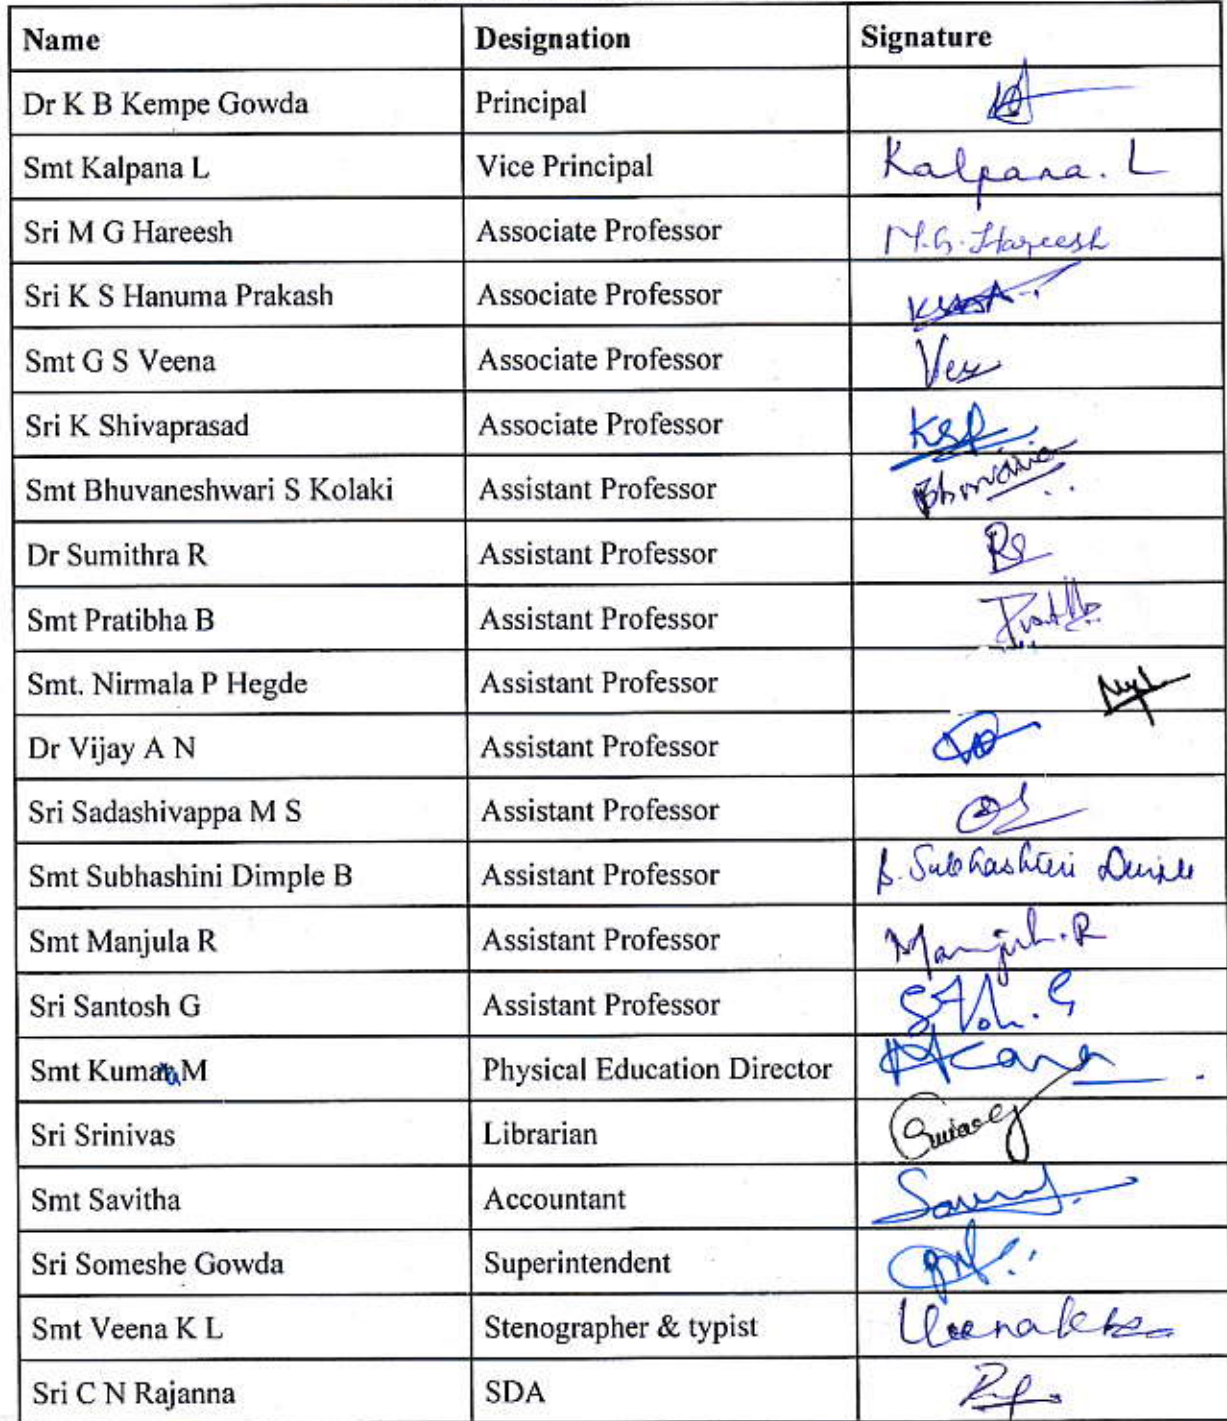 Name Designation Signature
Dr K B Kempe Gowda Principal
Smt Kalpana L Vice Principal Kalpana. L
Sri M G Hareesh Associate Professor M.G. Hareesh
Sri K S Hanuma Prakash Associate Professor
Smt G S Veena Associate Professor
Sri K Shivaprasad Associate Professor KSP
Smt Bhuvaneshwari S Kolaki Assistant Professor
Dr Sumithra R Assistant Professor
Smt Pratibha B Assistant Professor
Smt. Nirmala P Hegde Assistant Professor
Dr Vijay A N Assistant Professor
Sri Sadashivappa M S Assistant Professor
Smt Subhashini Dimple B Assistant Professor B. Subhashini Dimple
Smt Manjula R Assistant Professor Manjula. R
Sri Santosh G Assistant Professor
Smt M Physical Education Director
Sri Srinivas Librarian
Smt Savitha Accountant
Sri Someshe Gowda Superintendent
Smt Veena K L Stenographer & typist
Sri C N Rajanna SDA